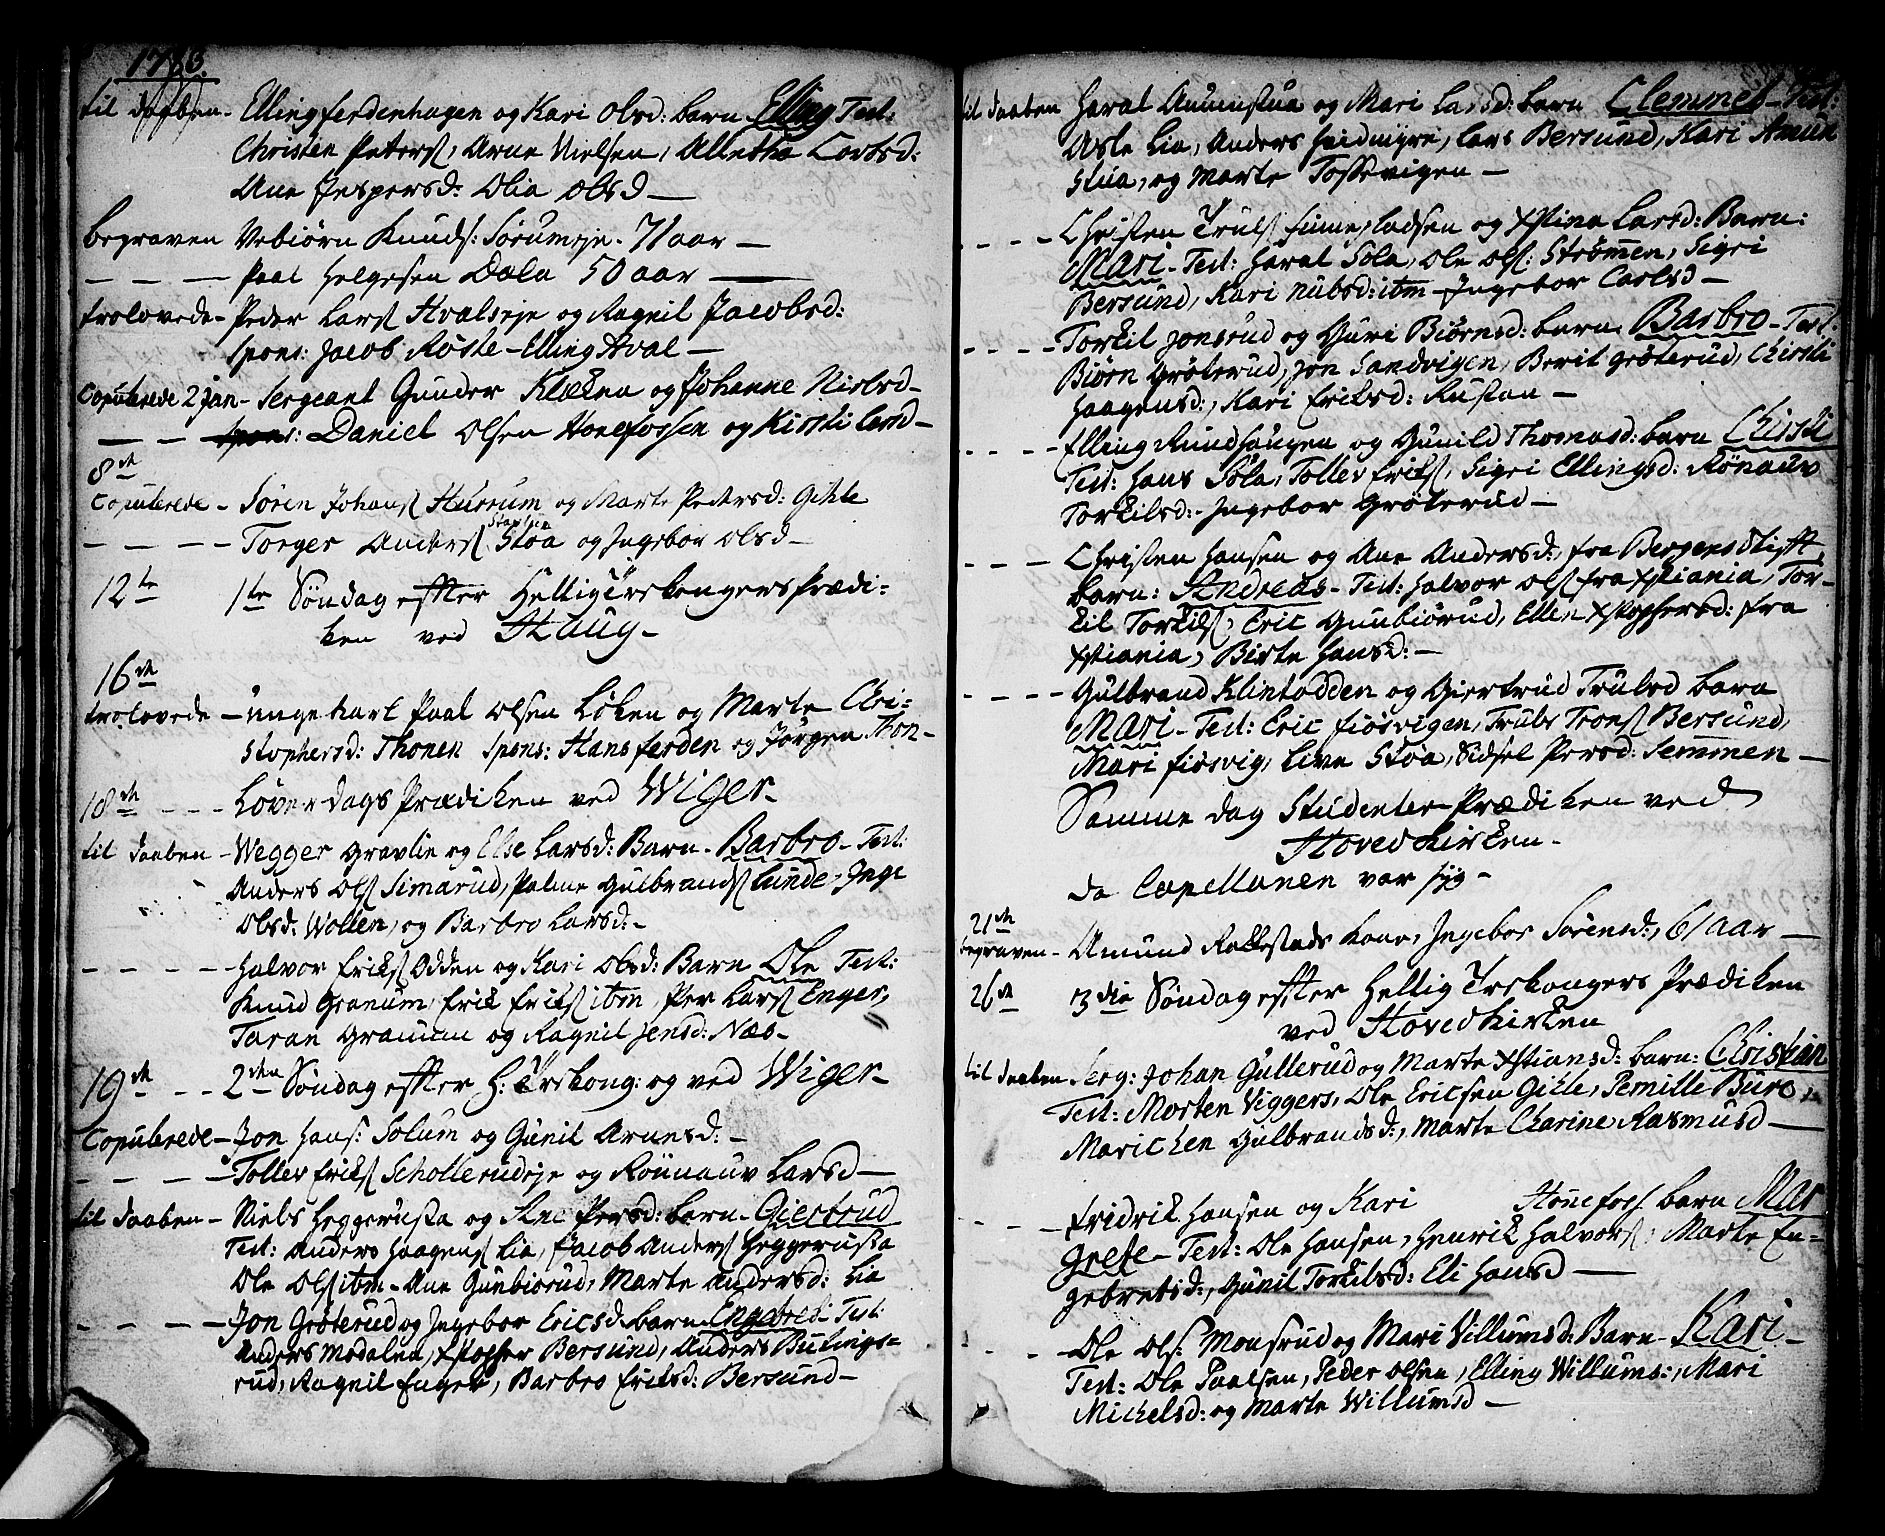 til daaben - Elling ferdenhagen og Kari Olsd: barn Elling Test:
Christen Peters, Arne Nielsen, Alletha Corbsd:
Ane Jespersd: Olia Olsd —
begraven Vebiørn Knuds: Sørumeje. 71 aar —
— — — Paal Helgesen Dala 50 aar —
trolovede - Peder Lars Hvalseje og Ragnil Jacobsd:
Spons: Jacob Røste - Elling Hval —
Copulerede 2 Jan - Sergeant Gunder Klækna og Johanne Nielsd -
— — Daniel Olsen Honefossen og Kirsti Larsd -
8de
Copulerede - Sören Johans Hurrum og Marte Pedersd: Gihle
— — — Torger Anders Støa og Ingebor Olsd -
12te 1te Søndag effter Hellig Trekongers Prædi=
ken ved Haug -
16de
trolovede - unge karl Paal Olsen Løken og Marte Chri=
stophersd: Thonen Spons: Hans ferden og Jörgen Thon -
18de - - - Løverdags Prædiken ved Wiger -
til daaben - Wegger Gravlie og Else Larsd: Barn - Barbro - Test:
Anders Ols Simarud, Palme Gulbrands Lunde, Inge
Olsd: Wollen, og Barbro Larsd: -
- - - - Halvor Eriks Odden og Kari Olsd: Barn Ole Test:
Knud Granum, Erik Eriks ibm, Per Lars Enger,
Taran Granum og Ragnil Jensd: Næs -
19de - - 2den Søndag effter H: Trekong: og ved Wiger -
Copulerede - Jon Hans: Solum og Gunil Arnesd: -
- - - - Tollev Eriks Schollerudeje og Rönnauv Larsd —
til daaben - Niels Heggerusta og Ane Persd: barn - Giertrud
Test: Anders Haagens Lia, Jacob Anders Heggerusta
Ole Ols ibm - Ane Gunbiørud, Marte Andersd: Lia
- - - - Jon Gröterud og Ingebor Ericsd. barn Engebret - Test:
Anders Modalen, Xstopher Bersund, Anders Bulings=
rud, Ragnil Enger, Barbro Eriksd: Bersund -
til daaben Haral Amunstua og Mari Larsd: barn Clemmet - Test:
Asle Lia, Anders Heidmyre, Lars Bersund, Kari Amun
stua, og Marte Tossevigen —
- - - - Christen Truls finnerladsen og Xstina Larsd: Barn:
Mari - Test: Haral Sola, Ole Ols: Strømmen, Sigri
Bersund, Kari Nubsd: ibm - Ingebor Carlsd —
- - - - Torkil Jonsrud og Guri Biørnsd: barn. Barbro - Test:
Biørn Gröterud, Jon Sandvigen, Berit Gröterud, Chirsti
Haagensd:, Kari Eriksd: Rustan —
- - - - Elling Rundhaugen og Gunild Thomasd: barn Chirsti
Test: Hans Sola, Tollev Eriks, Sigri Ellingsd: Rönauv
Torkilsd: - Ingebor Gröterud —
- - - Christen Hansen og Ane Andersd: fra Bergens Stifft
barn: Andreas - Test: Halvor Ols fra Xstiania, Tor-
kil Torkils, Eric Gunbiørud, Ellen Xstophersd: fra
Xstiania, Birte Hansd: —
- - - - Gulbrand Klintodden og Giertrud Trulsd barn
Mari - Test: Eric fiøsvigen, Truls Trons Bersund,
Mari fiøsvig, Live Støa, Sidsel Persd: Semmen —
Samme dag Studenter Prædiken ved
Hovedkirken -
da Capellanen var syg -
21de
begraven - Amund Rallestads kone, Ingebor Sörensd:, 61 aar —
26de 3die Søndag effter Hellig Trekongers Prædiken
ved Hovedkirken
til daaben Serg: Johan Gullerud og Marte Xstiansd: barn: Christian
Test: Morten Viggers, Ole Ericsen Gihle, Pernille Buro,
Marichen Gulbrandsd:, Marte Charine Rasmusd —
- - - fridrik Hansen og Kari Hönefos barn Mar
grete - Test: Ole Hansen, Henrik Halvors, Marte En=
gebretsd:, Gunil Torkilsd: Eli Hansd —
- - - Ole Ols: Monsrud og Mari Villumsd: Barn - Kari -
Test: Ole Paalsen, Peder Olsen, Elling Willums:, Mari
Michelsd: og Marte Willumsd —